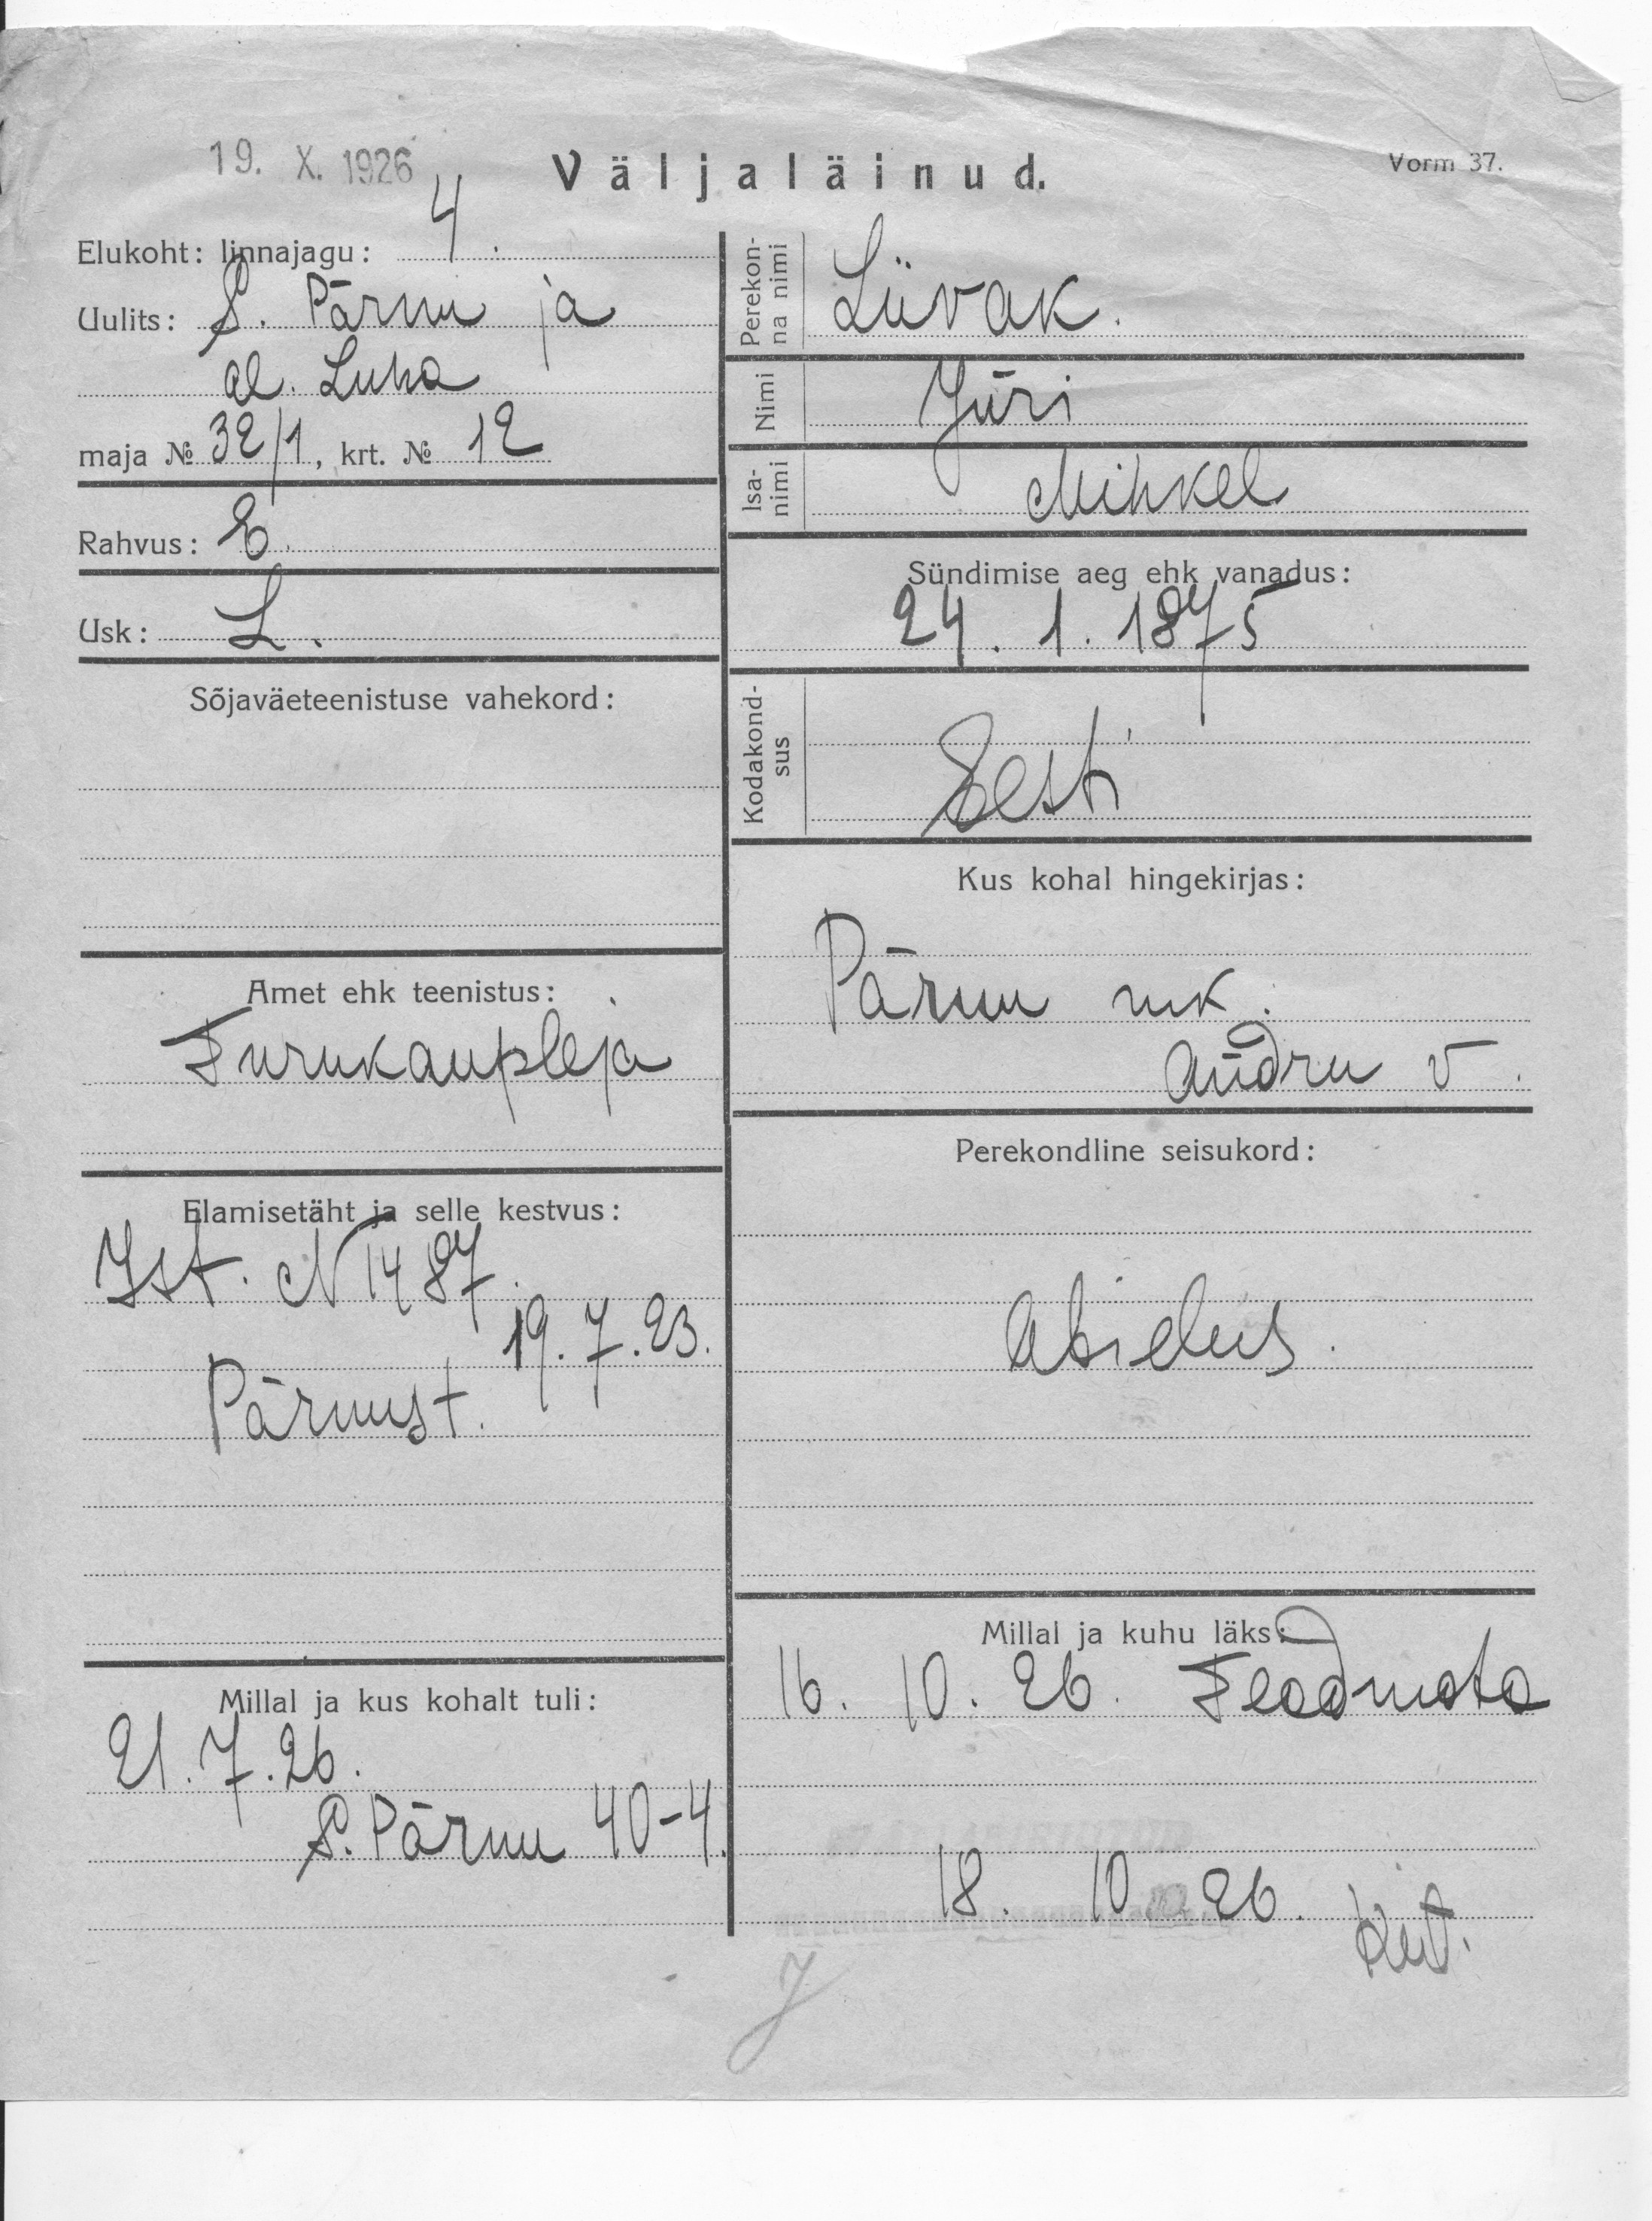 19. X. 1926
Väljaläinud.
Vorm 37.
Elukoht: linnajagu: 4.
Uulits: S. Pärnu ja
al. Luha
maja № 32/1, krt. № 12
Rahvus: E.
Usk: L.
Sõjaväeteenistuse vahekord:
Amet ehk teenistus:
Turukaupleja
Elamisetäht ja selle kestvus:
Ist. N 1487.
19.7.23.
Pärnust.
Millal ja kus kohalt tuli:
21.7.26.
S. Pärnu 40-4.
Perekon-
na nimi
Liivak.
Nimi
Jüri
Isa-
nimi
Mihkel
Sündimise aeg ehk vanadus:
24. 1. 1875
Kodakond-
sus
Eesti
Kus kohal hingekirjas:
Pärnu mk.
Audru v.
Perekondline seisukord:
Abielus.
Millal ja kuhu läks:
16. 10. 26. Teadmata
18. 10. 26.
J